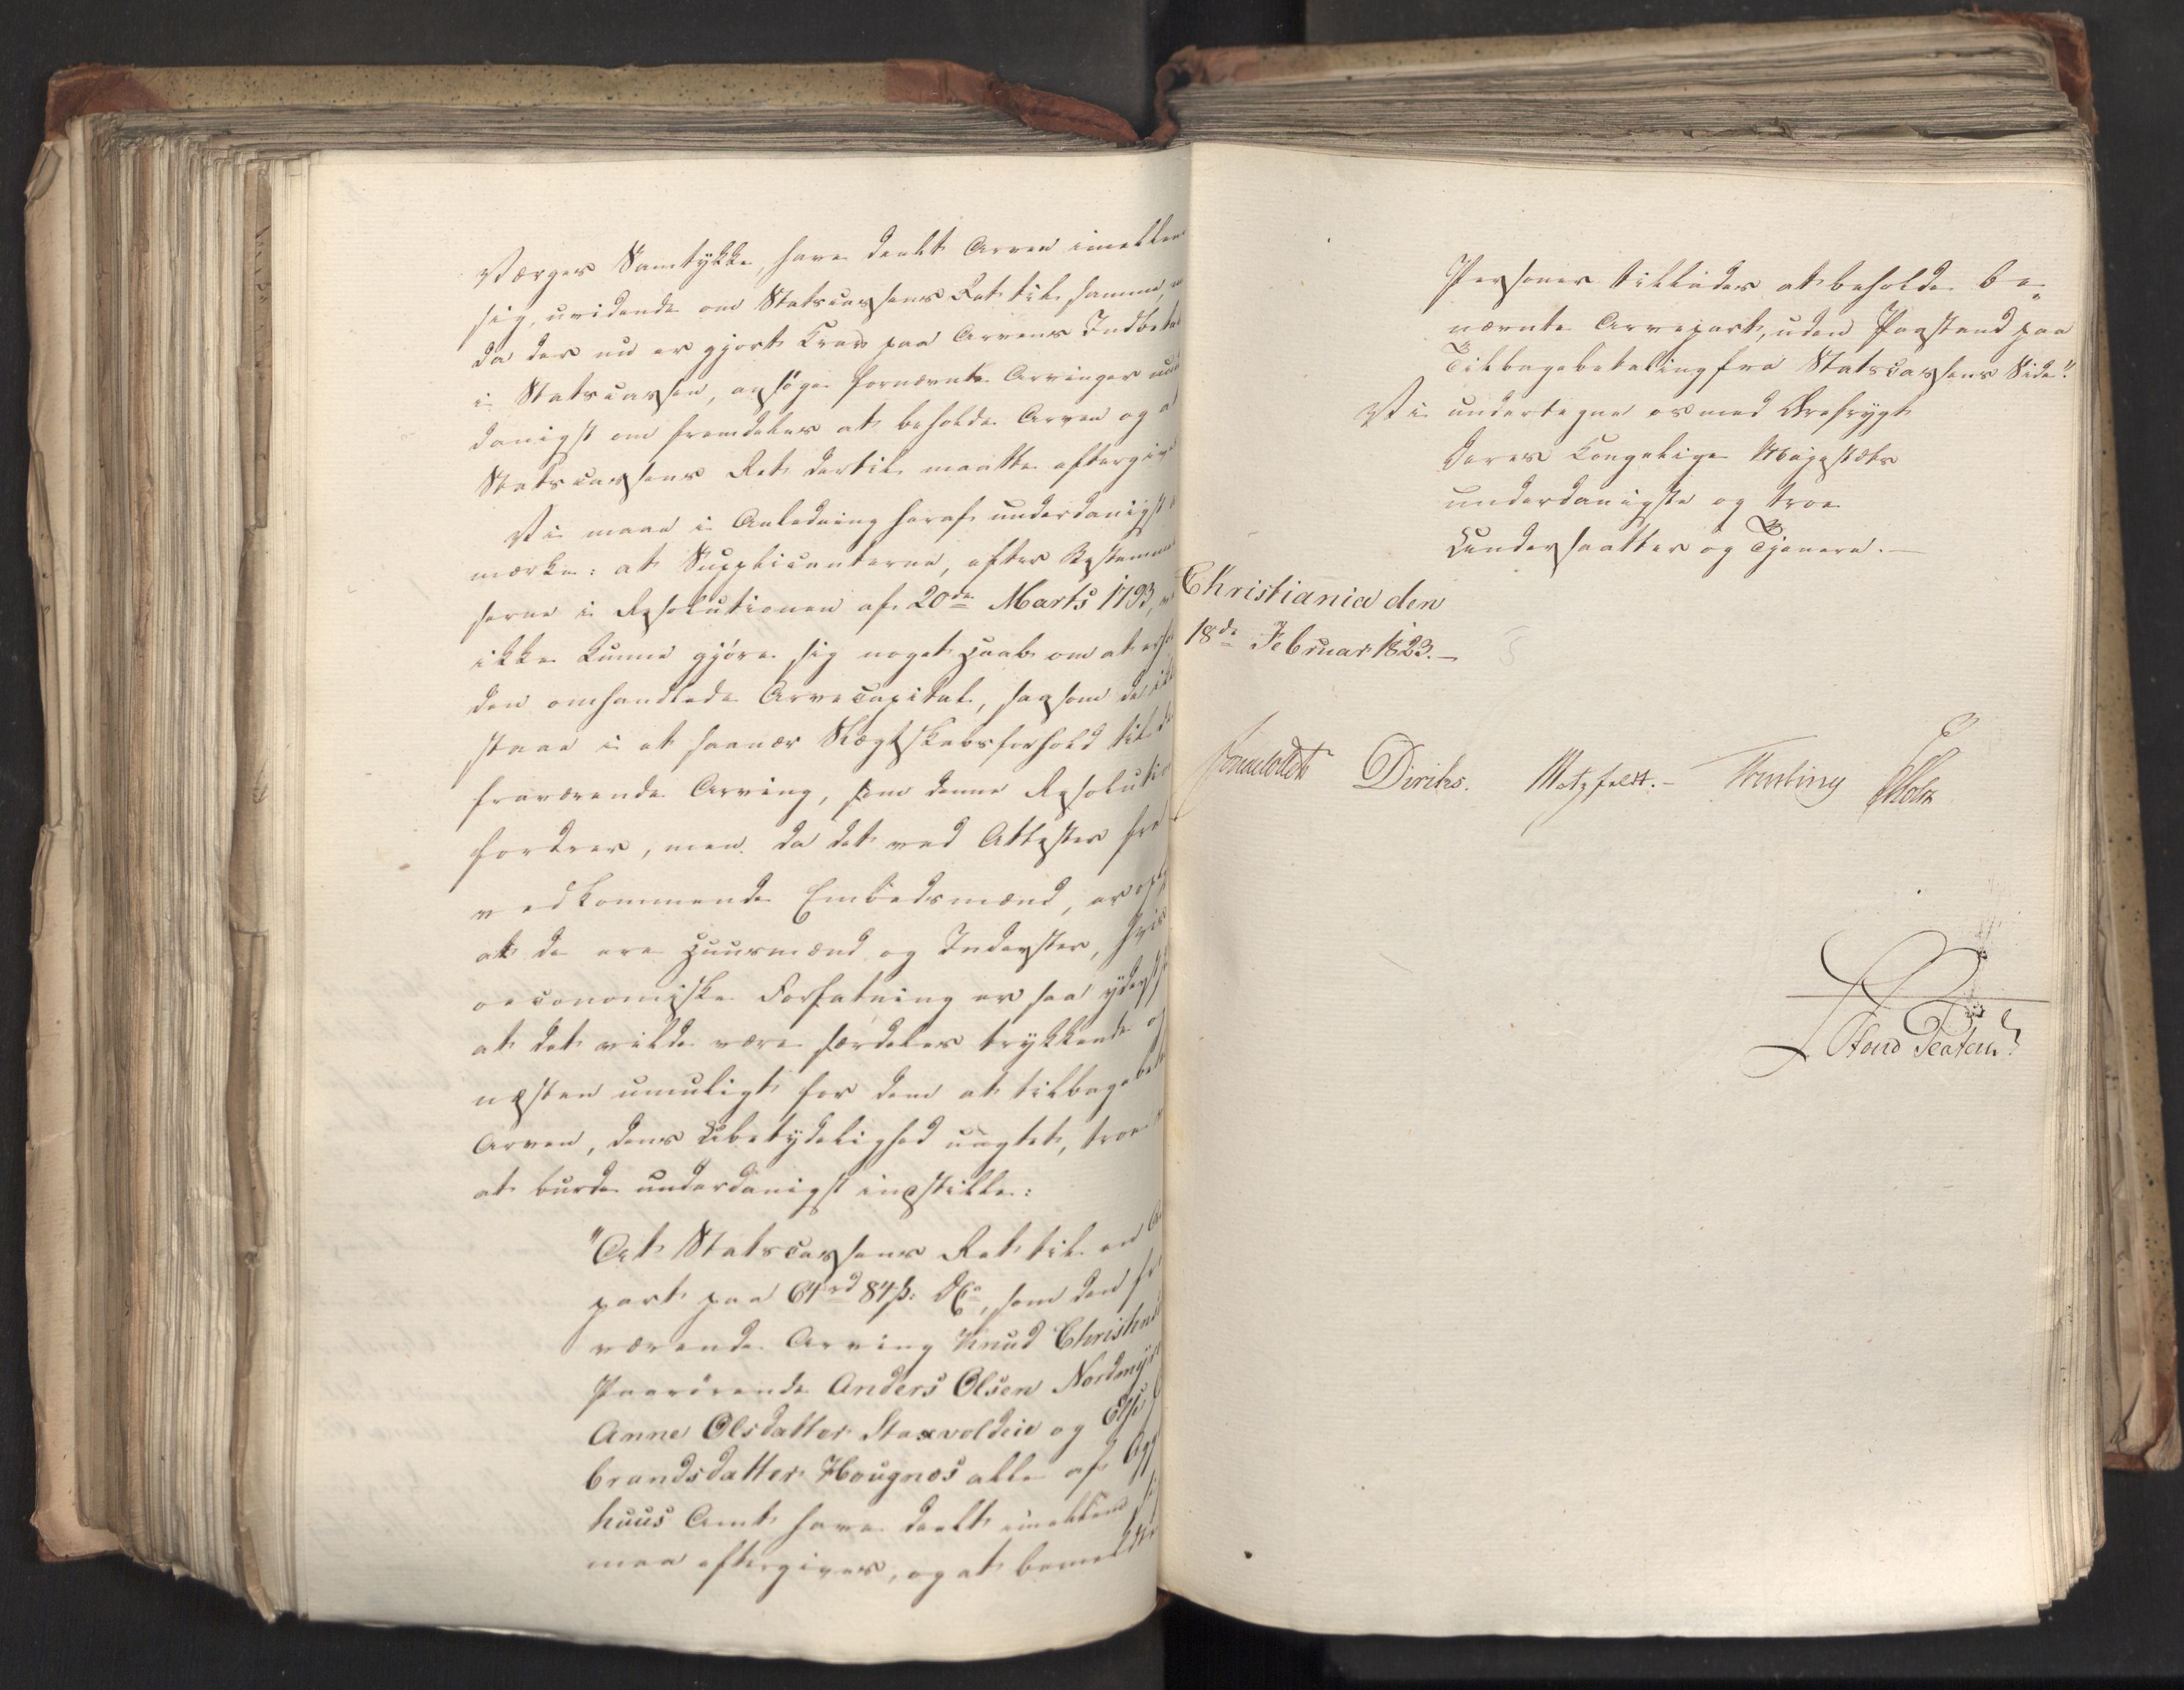 Værges Samtykke, have deelt Arven imellem
sig, uvidende om Statscassens Ret til samme,
da der nu er gjort Krav paa Arvens Indbeta
i Statscassen, ansøge fornævnte Arvinger un
danigst om fremdeles at beholde Arven og at
Statscassens Ret dertil maatte eftergiv
Vi maae i Anledning heraf underdanigst
mærke: at Supplicanterne, efter Bestemmel
serne i Resolutionen af 20de Marts 1793,
ikke kunne gjøre sig noget Haab om at erh
den omhandlede Arvecapital, saasom de ik
staae i et saa nær Slægtskabsforhold til de
fraværende Arving, som denne Resolution
fordrer, men da det ved Attester fra
vedkommende Embedsmænd, er opl
at de ere Huusmænd og Inderster, hvis
oeconomiske Forfatning er saa yderst
at det vilde være særdeles trykkende og
næsten umuligt for dem at tilbagebeta
Arven, dens Ubetydelighed uagtet, troe
at burde underdanigst indstille:
"At Statscassens Ret til en
part paa 61rd 84ß: D.C., som den fra
værende Arving Knud Christens
Paarørende Anders Olsen Nordmyr
Anne Olsdatter Staxvoldeie og Else
brandsdatter Hougnæs alle af Agg
huus Amt have deelt imellem sig
maa eftergives, og at bemeldte
Personer tillades at beholde be-
nævnte Arvepart, uden Paastand paa
Tilbagebetaling fra Statscassens Side".
Vi undertegne os med Ærefrygt
Deres Kongelige Majestæts
underdanigste og troe
Undersaatter og Tjenere.
Christiania den
18de Februar 1823.
Diriks. Motzfeldt. Treschow Holst